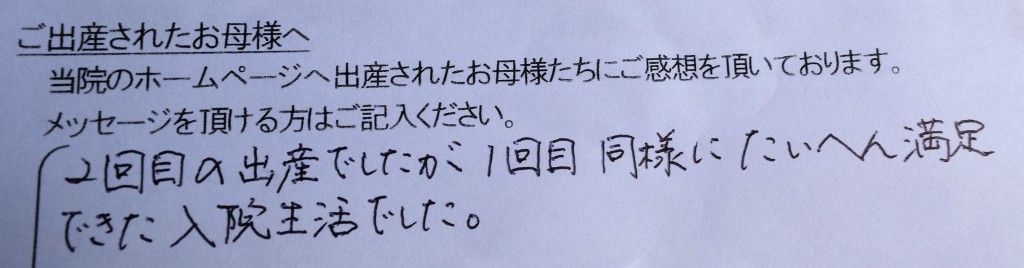 ご出産されたお母様へ
当院のホームページへ出産されたお母様たちにご感想を頂いております。
メッセージを頂ける方はご記入ください。
2回目の出産でしたが1回目同様にたいへん満足
できた入院生活でした。